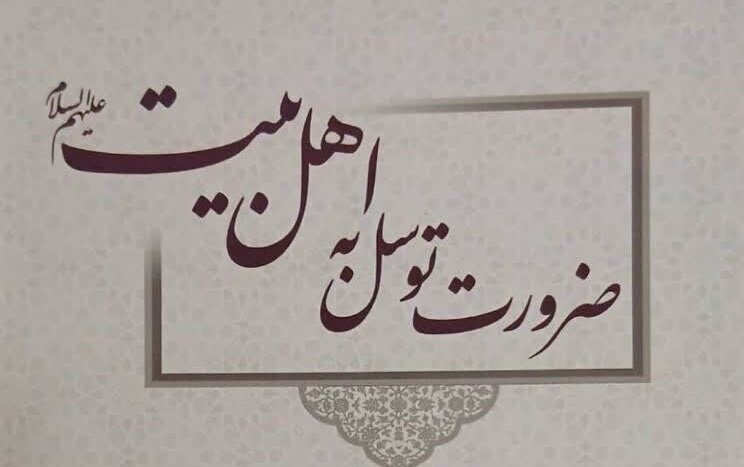 ضرورت توسل به
اهل بیت علیهم السلام